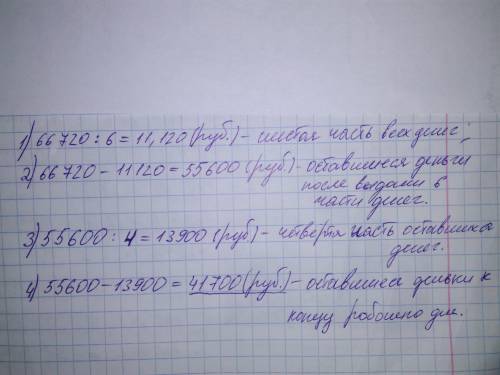 1) 66720 : 6 = 11,120 (руб.) – шестая часть всех денег.
2) 66720 – 11120 = 55600 (руб.) – оставшиеся деньги
после выдачи 6
части денег.
3) 55600 : 4 = 13900 (руб) – четвертя часть оставшихся
денег.
4) 55600 – 13900 = 41700 (руб.) – оставшиеся деньги к
концу рабошего дня.